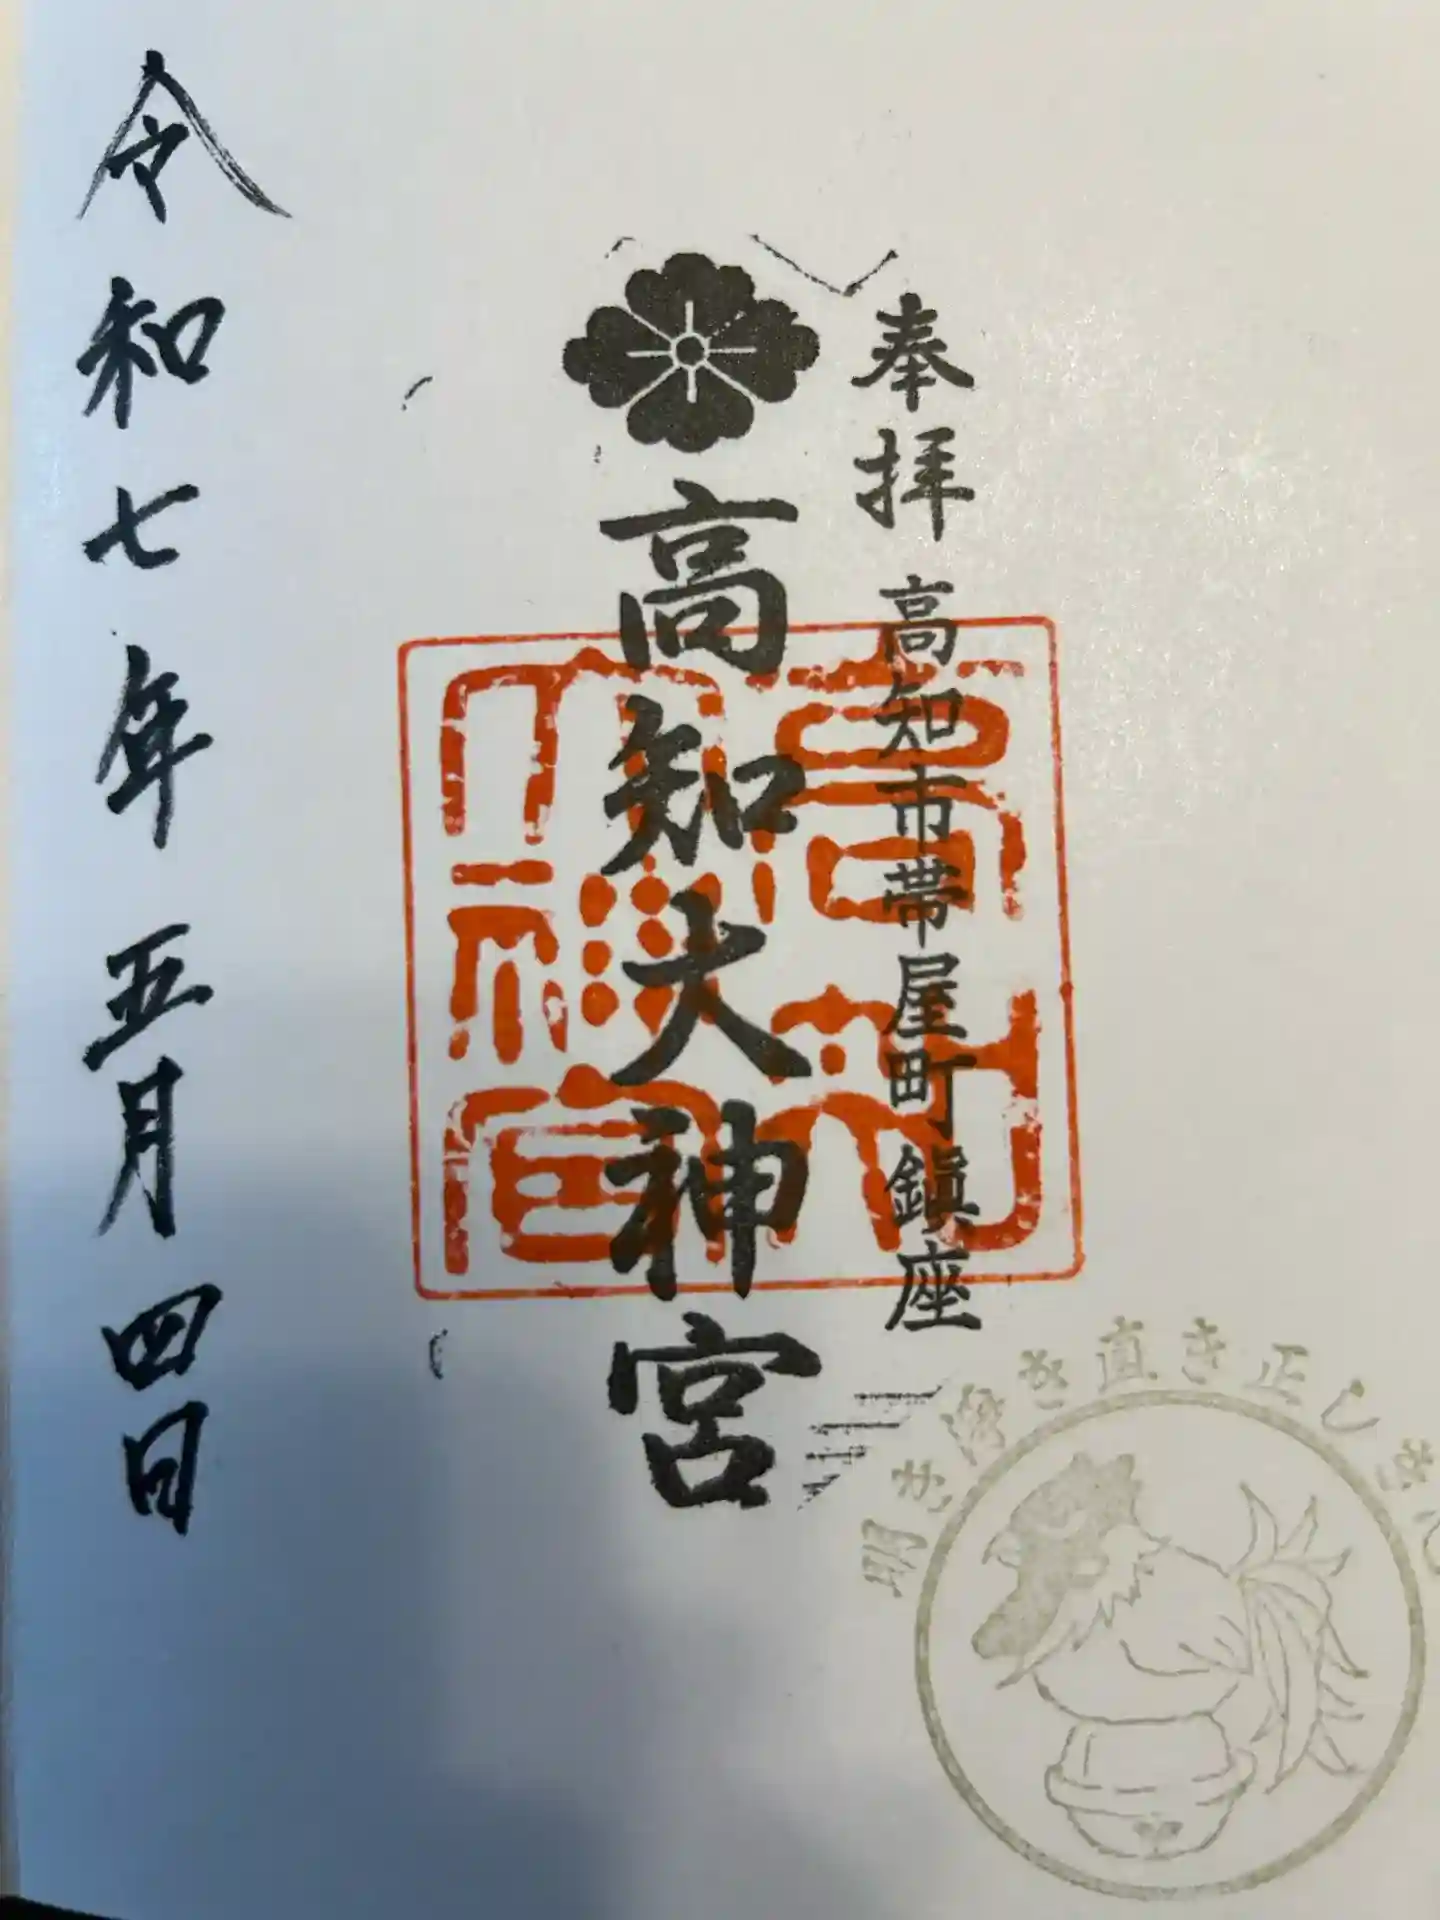 奉拝
高知市帯屋町鎮座
高知大神宮
令和七年五月四日
明き浄き直き正しき